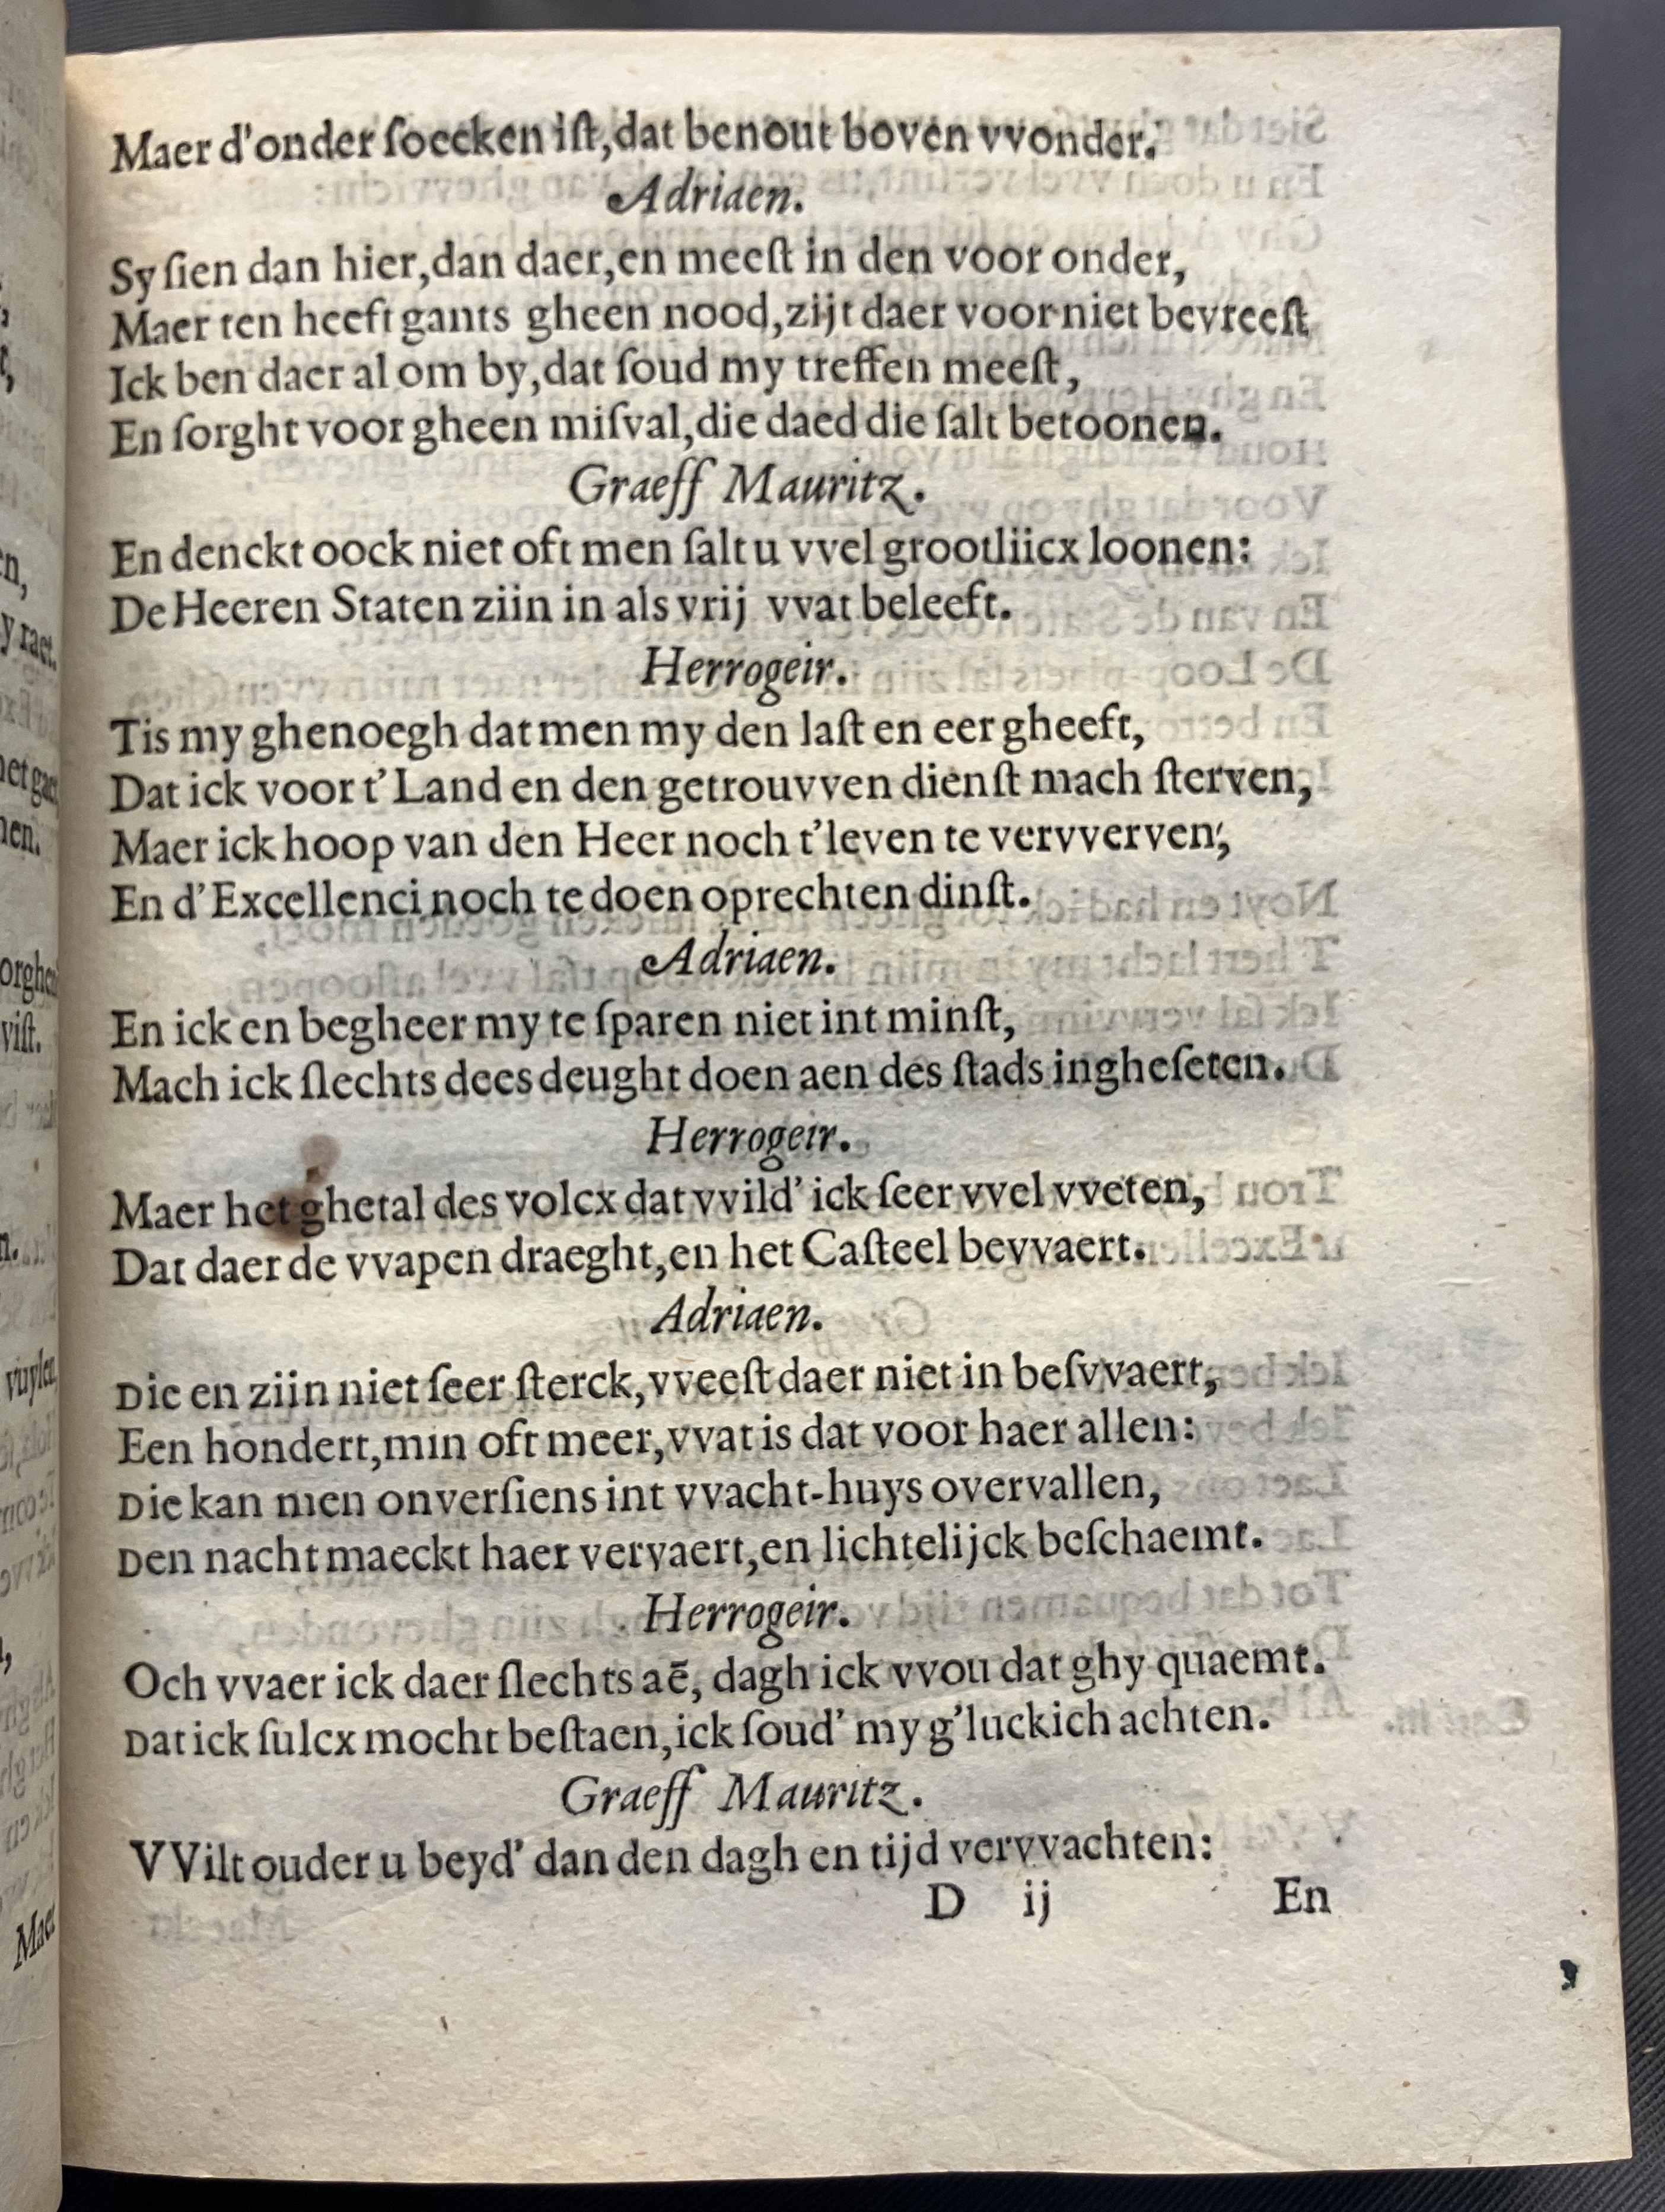 Maer d'onder ſoecken iſt,dat benout boven vvonder.
Adriaen.
Sy ſien dan hier,dan daer,en meeſt in den voor onder,
Maer ten heeft gants gheen nood,zijt daer voor niet bevreeſt
Ick ben daer al om by,dat ſoud my treffen meeſt,
En ſorght voor gheen miſval,die daed die ſalt betoonen.
Graeff Mauritz.
En denckt oock niet oft men ſalt u vvel grootliicx loonen:
De Heeren Staten ziin in als vrij vvat beleeft.
Herrogeir.
Tis my ghenoegh dat men my den laſt en eer gheeft,
Dat ick voor t'Land en den getrouvven dienſt mach ſterven,
Maer ick hoop van den Heer noch t'leven te vervverven,
En d'Excellenci noch te doen oprechten dinſt.
Adriaen.
En ick en begheer my te ſparen niet int minſt,
Mach ick ſlechts dees deught doen aen des ſtads ingheſeten.
Herrogeir.
Maer het ghetal des volcx dat vvild' ick ſeer vvel vveten,
Dat daer de vvapen draeght,en het Caſteel bevvaert.
Adriaen.
Die en ziin niet ſeer ſterck,vveeſt daer niet in beſvvaert,
Een hondert,min oft meer,vvat is dat voor haer allen:
Die kan men onverſiens int vvacht-huys overvallen,
Den nacht maeckt haer vervaert,en lichtelijck beſchaemt.
Herrogeir.
Och vvaer ick daer ſlechts aē, dagh ick vvou dat ghy quaemt.
Dat ick ſulcx mocht beſtaen,ick ſoud' my g'luckich achten.
Graeff Mauritz.
VVilt ouder u beyd' dan den dagh en tijd vervvachten:
D ij En